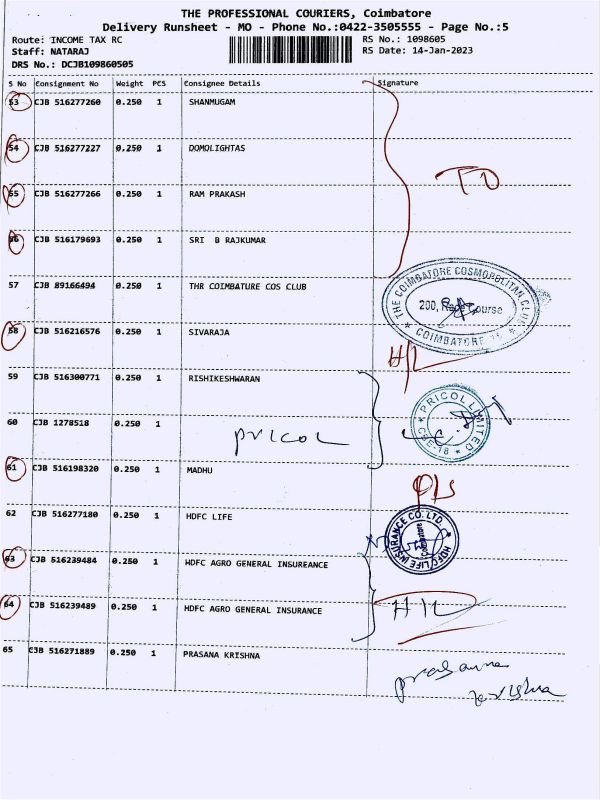 THE PROFESSIONAL COURIERS, Coimbatore
Delivery Runsheet - MO - Phone No.:0422-3505555 - Page No.:5
Route: INCOME TAX RC RS No.: 1098605
Staff: NATARAJ RS Date: 14-Jan-2023
DRS No.: DCJB109860505
S No Consignment No Weight PCS Consignee Details Signature
53 CJB 516277260 0.250 1 SHANMUGAM
54 CJB 516277227 0.250 1 DOMOLIGHTAS
TD
55 CJB 516277266 0.250 1 RAM PRAKASH
56 CJB 516179693 0.250 1 SRI B RAJKUMAR
57 CJB 89166494 0.250 1 THR COIMBATURE COS CLUB
THE COIMBATORE COSMOPOLITAN CLUB
200, Race Course
COIMBATORE
58 CJB 516216576 0.250 1 SIVARAJA
H/L
59 CJB 516300771 0.250 1 RISHIKESHWARAN
60 CJB 1278518 0.250 1 PRICOL
PRICOL LIMITED
CBE-18
61 CJB 516198320 0.250 1 MADHU
62 CJB 516277180 0.250 1 HDFC LIFE
HDFC LIFE INSURANCE CO. LTD.
Coimbatore
63 CJB 516239484 0.250 1 HDFC AGRO GENERAL INSUREANCE
64 CJB 516239489 0.250 1 HDFC AGRO GENERAL INSURANCE
65 CJB 516271889 0.250 1 PRASANA KRISHNA
prasanna
krishna